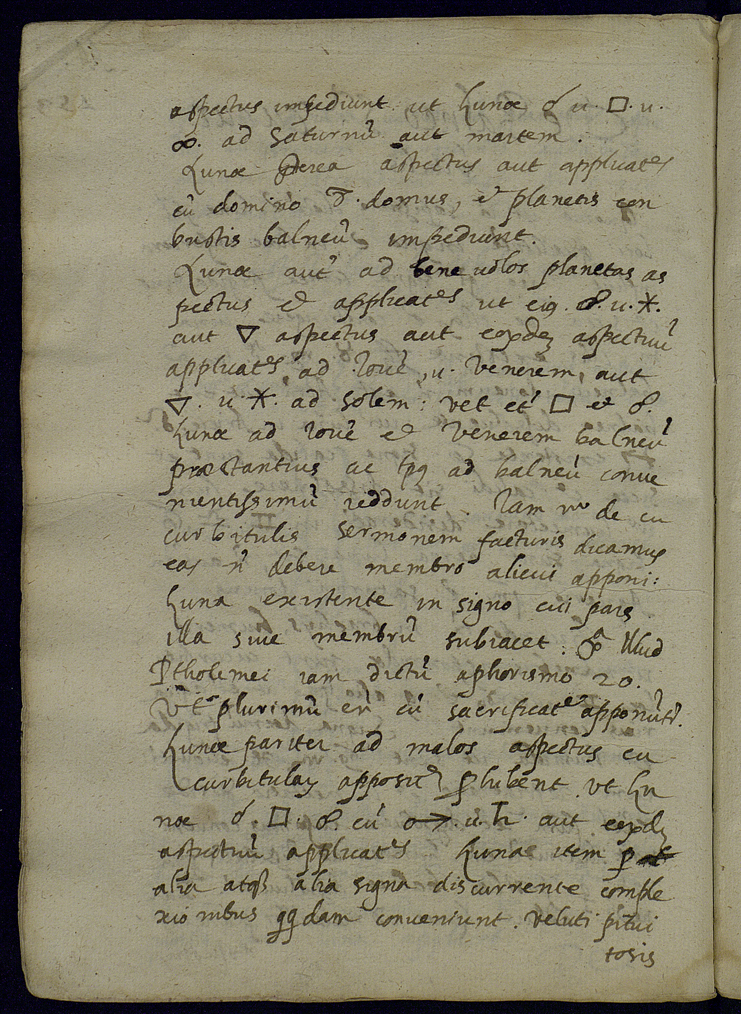 aspectus impediunt ut Lunæ ☌ u. □. u.
☍. ad Saturnū aut martem.
Lunæ aspectus aut applicatẽs
cū domino 8. domus, et planetis con
bustis balneū impediunt.
Lunæ aut' ad benevolos planetas as
pectus et applicatẽs ut eiꝯ. ☌. u. ⚹.
aut ▽ aspectus aut eorꝺē aspectuū
applicatẽs, ad Iovē, u. Venerem, aut
▽. u. ⚹. ad Solem: vel et' □ et ☍.
Lunæ ad Iovē et Venerem balneū
præstantius ac ad balneū conve
nientissimū reddunt. Iam v° de cu
curbitulis sermonem facturis dicamus
eas ñ debere membro alicui apponi:
Luna existente in signo cui pars
illa sive membrū subiacet: illud
Ptholemei iam dictū aphorismo 20.
Ut plurimū eñ cū sacrificatẽ apponūt'.
Lunæ pariter ad malos aspectus cu
curbitulas ꝓhibent. Vt Lu
næ ☌. □. ☍. cū ♂. u. ♄. aut eorꝺē
aspectuū applicatẽs. Lunæ item ꝑ
alia atqȝ alia signa discurrente comple
xionibus conveniunt. Veluti pitui
tosis